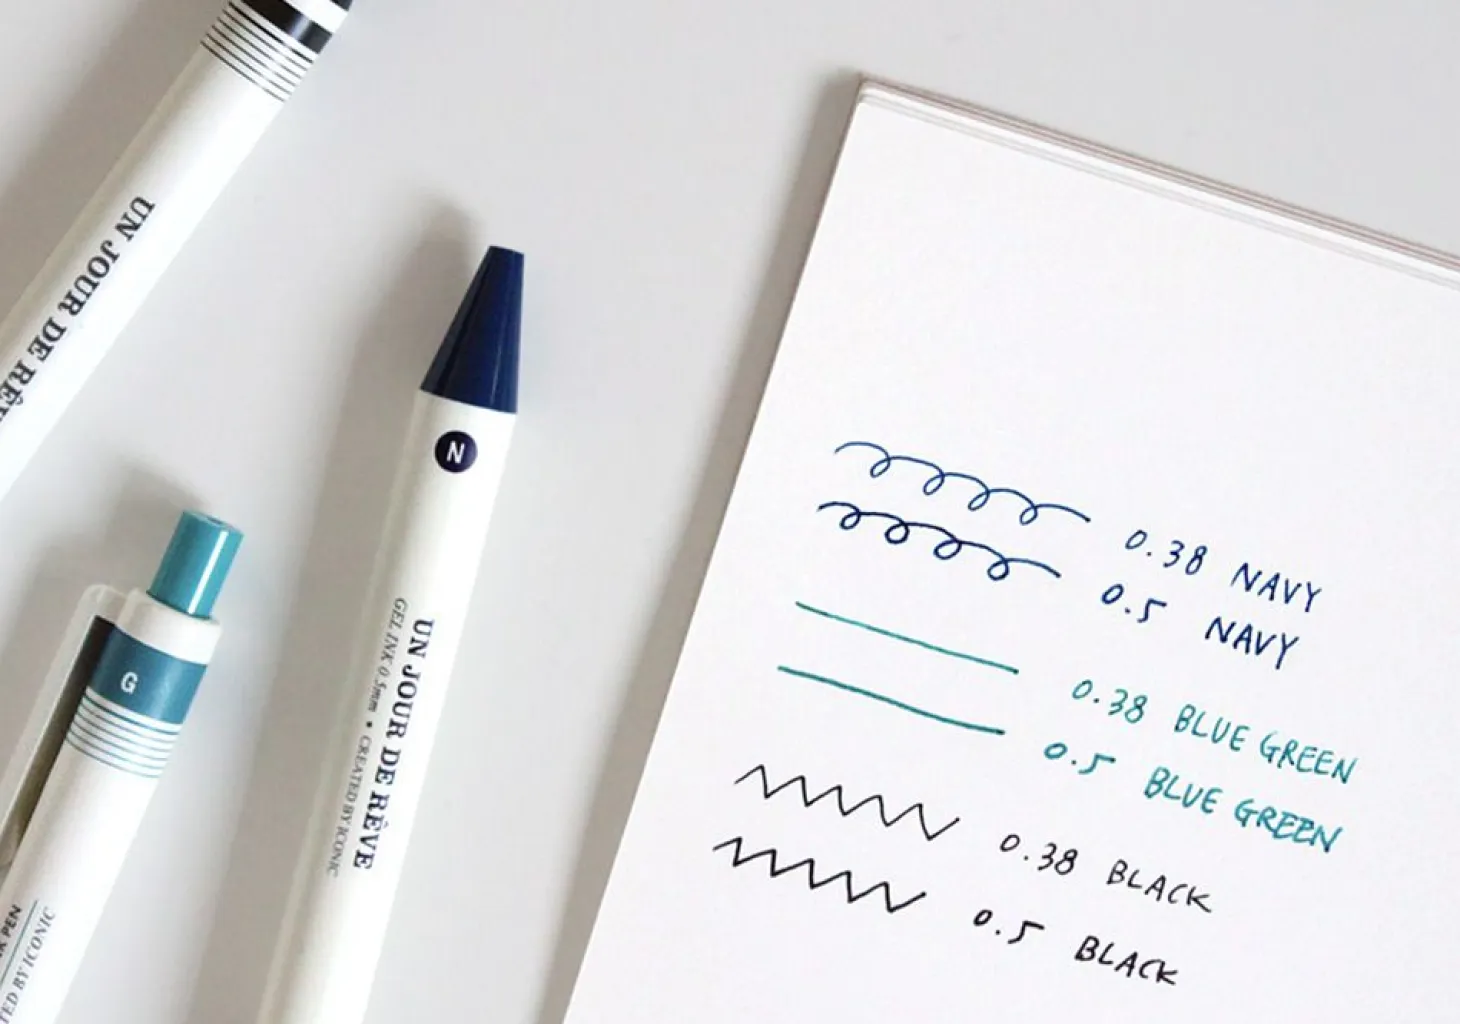 UN JOUR DE RÊ
N
UN JOUR DE RÊVE
GEL INK 0.5mm • CREATED BY ICONIC
G
PEN
TED BY ICONIC
0.38 NAVY
0.5 NAVY
0.38 BLUE GREEN
0.5 BLUE GREEN
0.38 BLACK
0.5 BLACK